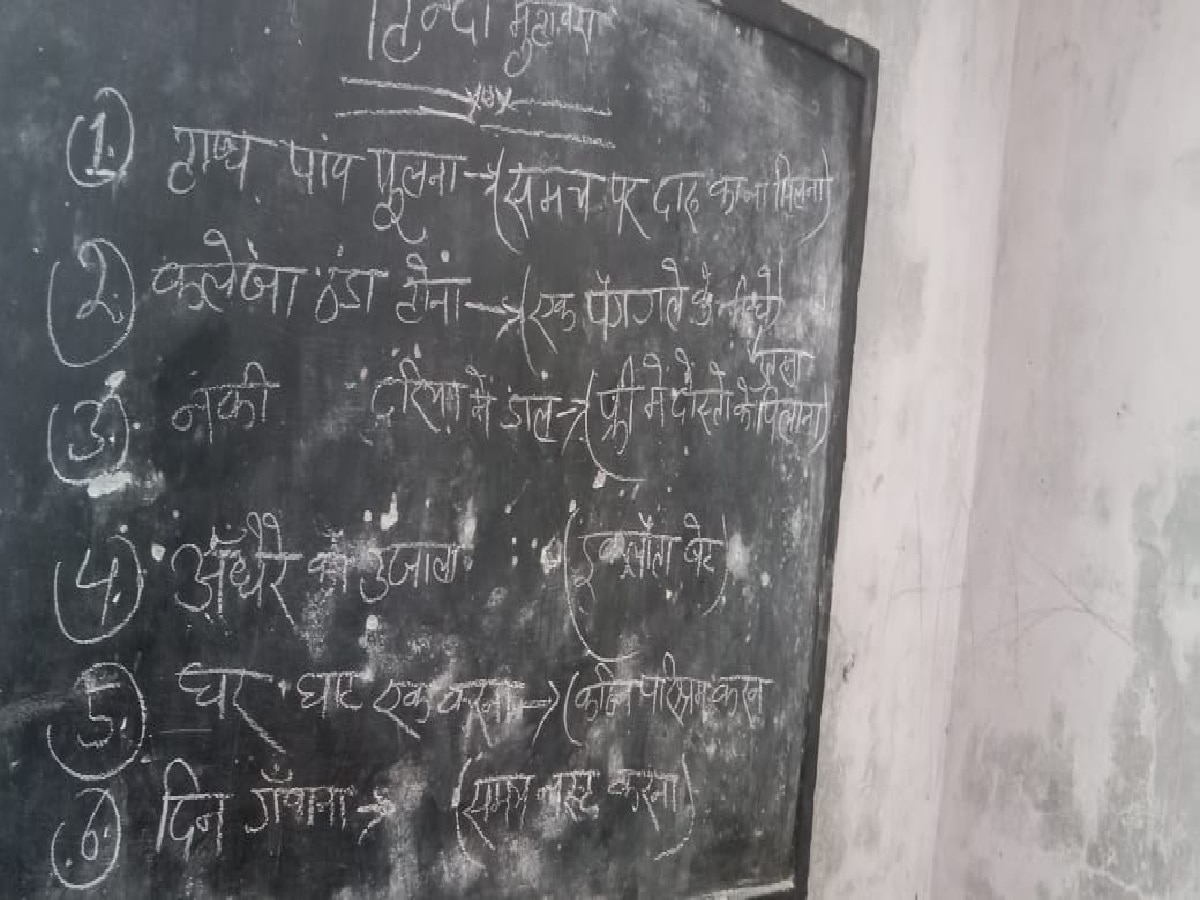 हिन्दी मुहावरा
1. हाथ पांव फूलना → (समय पर दारू का ना मिलना)
2. कलेजा ठंडा होना → (एक पैग गले के नीचे
जाना
3. नेकी दरिया में डाल → (फ्री में दोस्तो के पिलाना)
4. अँधेरे का उजाला (इकलौता बेटा)
5. घर घाट एक करना → (कठिन परिश्रम करना
6. दिन गँवाना → (समय नस्ट करना)